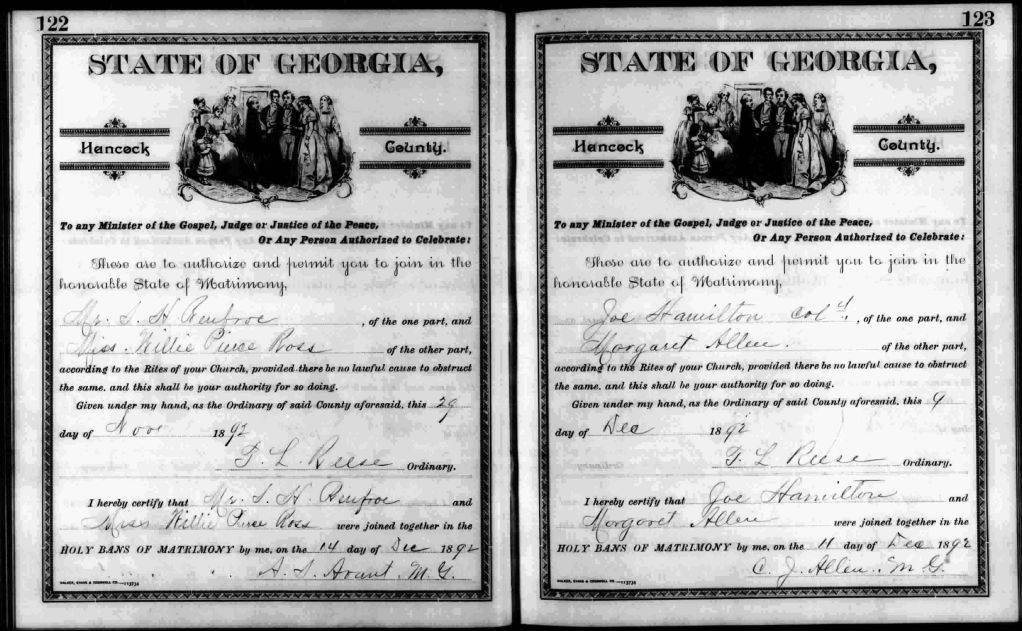 122
STATE OF GEORGIA,
Hancock County.
To any Minister of the Gospel, Judge or Justice of the Peace,
Or Any Person Authorized to Celebrate:
These are to authorize and permit you to join in the
honorable State of Matrimony,
Mr. S. H. Renfroe , of the one part, and
Miss. Willie Pierce Ross of the other part,
according to the Rites of your Church, provided there be no lawful cause to obstruct
the same, and this shall be your authority for so doing.
Given under my hand, as the Ordinary of said County aforesaid, this 29
day of Nov 1892
L. Reese Ordinary.
I hereby certify that Mr. S. H. Renfroe and
Miss Willie Pierce Ross were joined together in the
HOLY BANS OF MATRIMONY by me, on the 14 day of Dec 1892
A. S. Avant. M. G.
WALKER, EVANS & COGSWELL CO.—13734
123
STATE OF GEORGIA,
Hancock County.
To any Minister of the Gospel, Judge or Justice of the Peace,
Or Any Person Authorized to Celebrate:
These are to authorize and permit you to join in the
honorable State of Matrimony,
Joe Hamilton Cold. , of the one part, and
Margaret Allen. of the other part,
according to the Rites of your Church, provided there be no lawful cause to obstruct
the same, and this shall be your authority for so doing.
Given under my hand, as the Ordinary of said County aforesaid, this 9
day of Dec 1892
L Reese Ordinary.
I hereby certify that Joe Hamilton and
Margaret Allen were joined together in the
HOLY BANS OF MATRIMONY by me, on the 11 day of Dec 1892
C. J. Allen. M. G.
WALKER, EVANS & COGSWELL CO.—13734